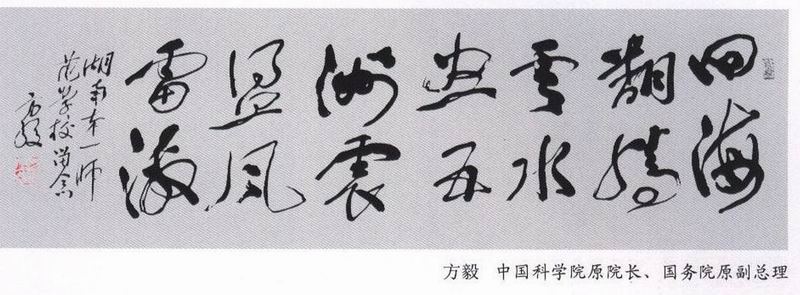 四海
翻騰
雲水
怒五
洲震
盪風
雷激
湖南第一师
范学校留念
方毅
方毅 中国科学院原院长、国务院原副总理